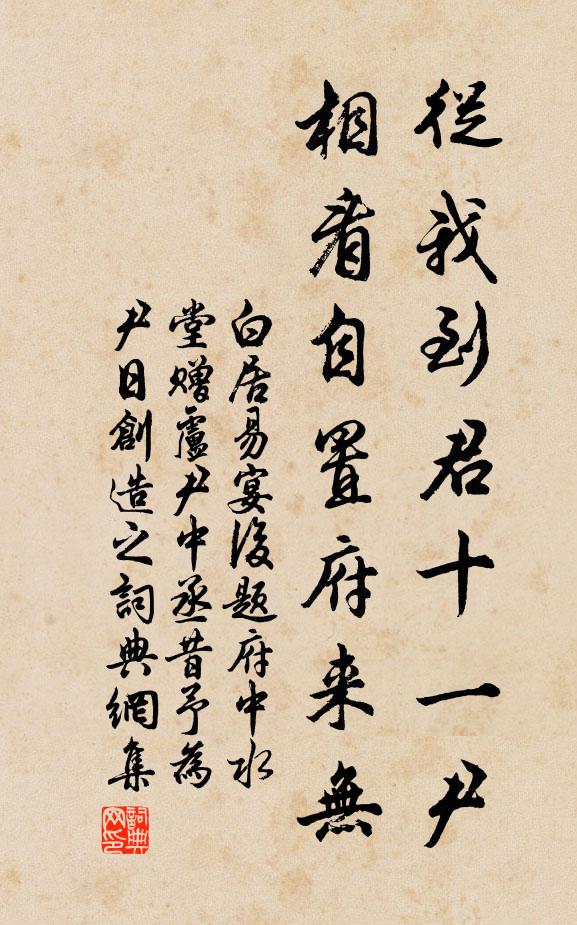 從我到君十一尹
相看自置府来無
白居易宴後题府中水
堂赠盧尹中丞昔予為
尹日創造之詞典網集
詞典网印